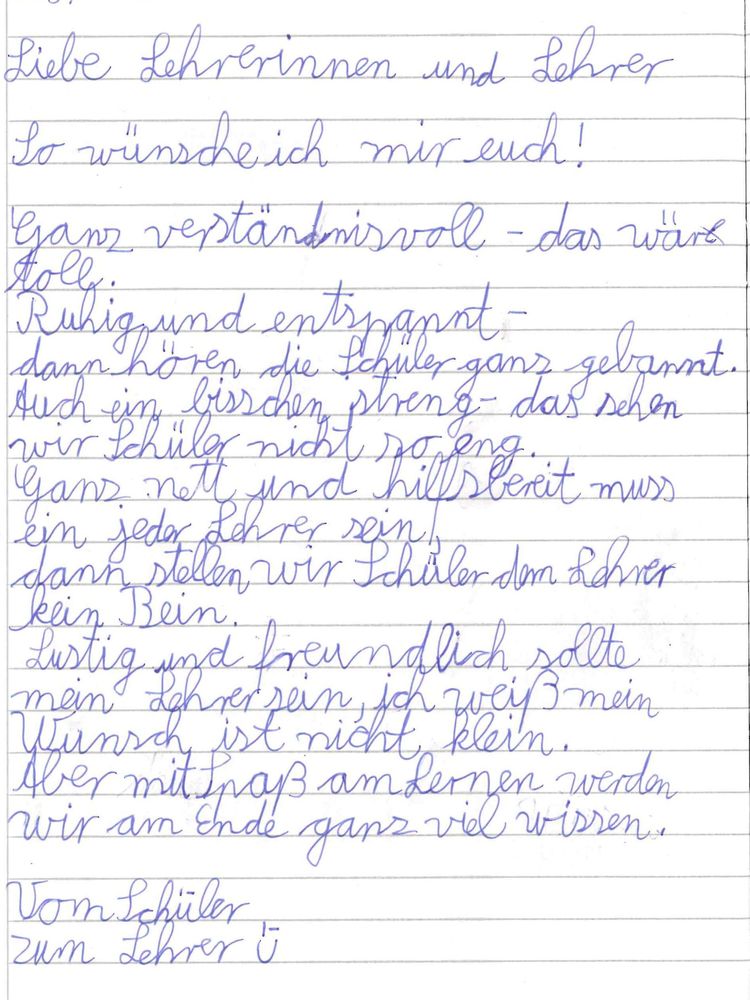 Liebe Lehrerinnen und Lehrer
So wünsche ich mir euch!
Ganz verständnisvoll - das wäre
toll.
Ruhig und entspannt -
dann hören die Schüler ganz gebannt.
Auch ein bisschen streng - das sehen
wir Schüler nicht so eng.
Ganz nett und hilfsbereit muss
ein jeder Lehrer sein,
dann stellen wir Schüler dem Lehrer
kein Bein.
Lustig und freundlich sollte
mein Lehrer sein, ich weiß mein
Wunsch ist nicht klein.
Aber mit Spaß am Lernen werden
wir am Ende ganz viel wissen.
Vom Schüler
zum Lehrer Ü